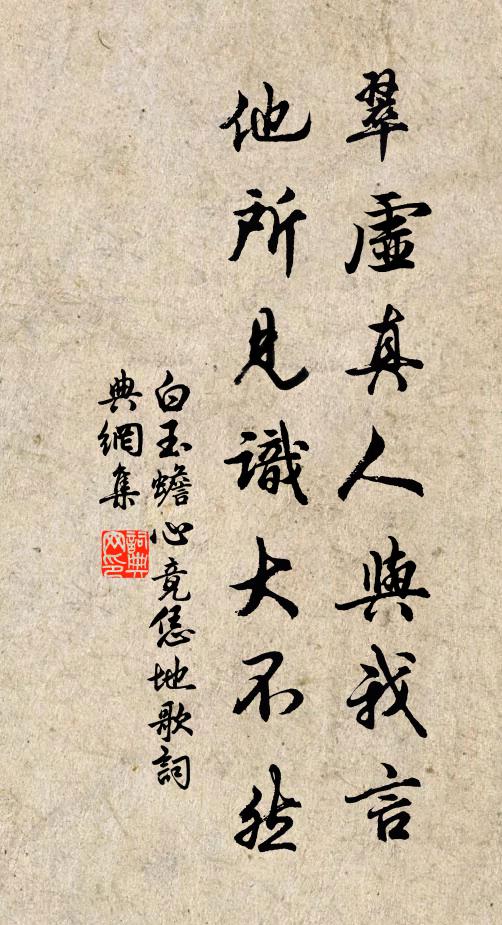 翠虛真人與我言
他所見識大不然
白玉蟾必竟恁地歌詞
典網集
詞典
网印